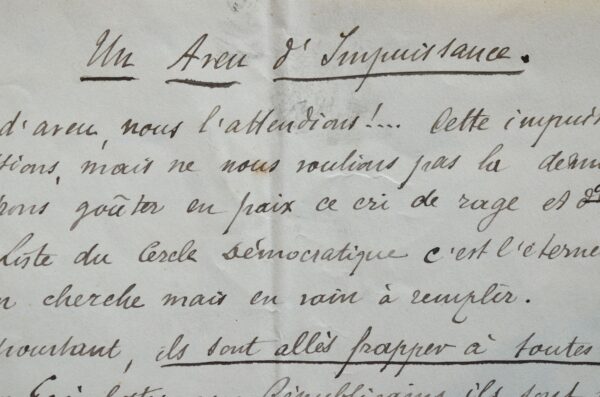 Un Aveu d'Impuissance.
d'aveu, nous l'attendions!... Cette impuis
tions, mais ne nous voulions pas la
ons goûter en paix ce cri de rage et
Liste du Cercle Démocratique c'est l'éterne
n cherche mais en vain à remplir.
pourtant, ils sont allés frapper à toutes
Républicains ils sont